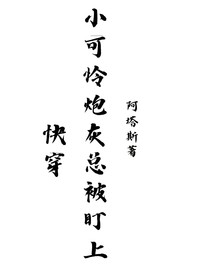 小可怜炮灰总被盯上
快穿
阿塔斯著